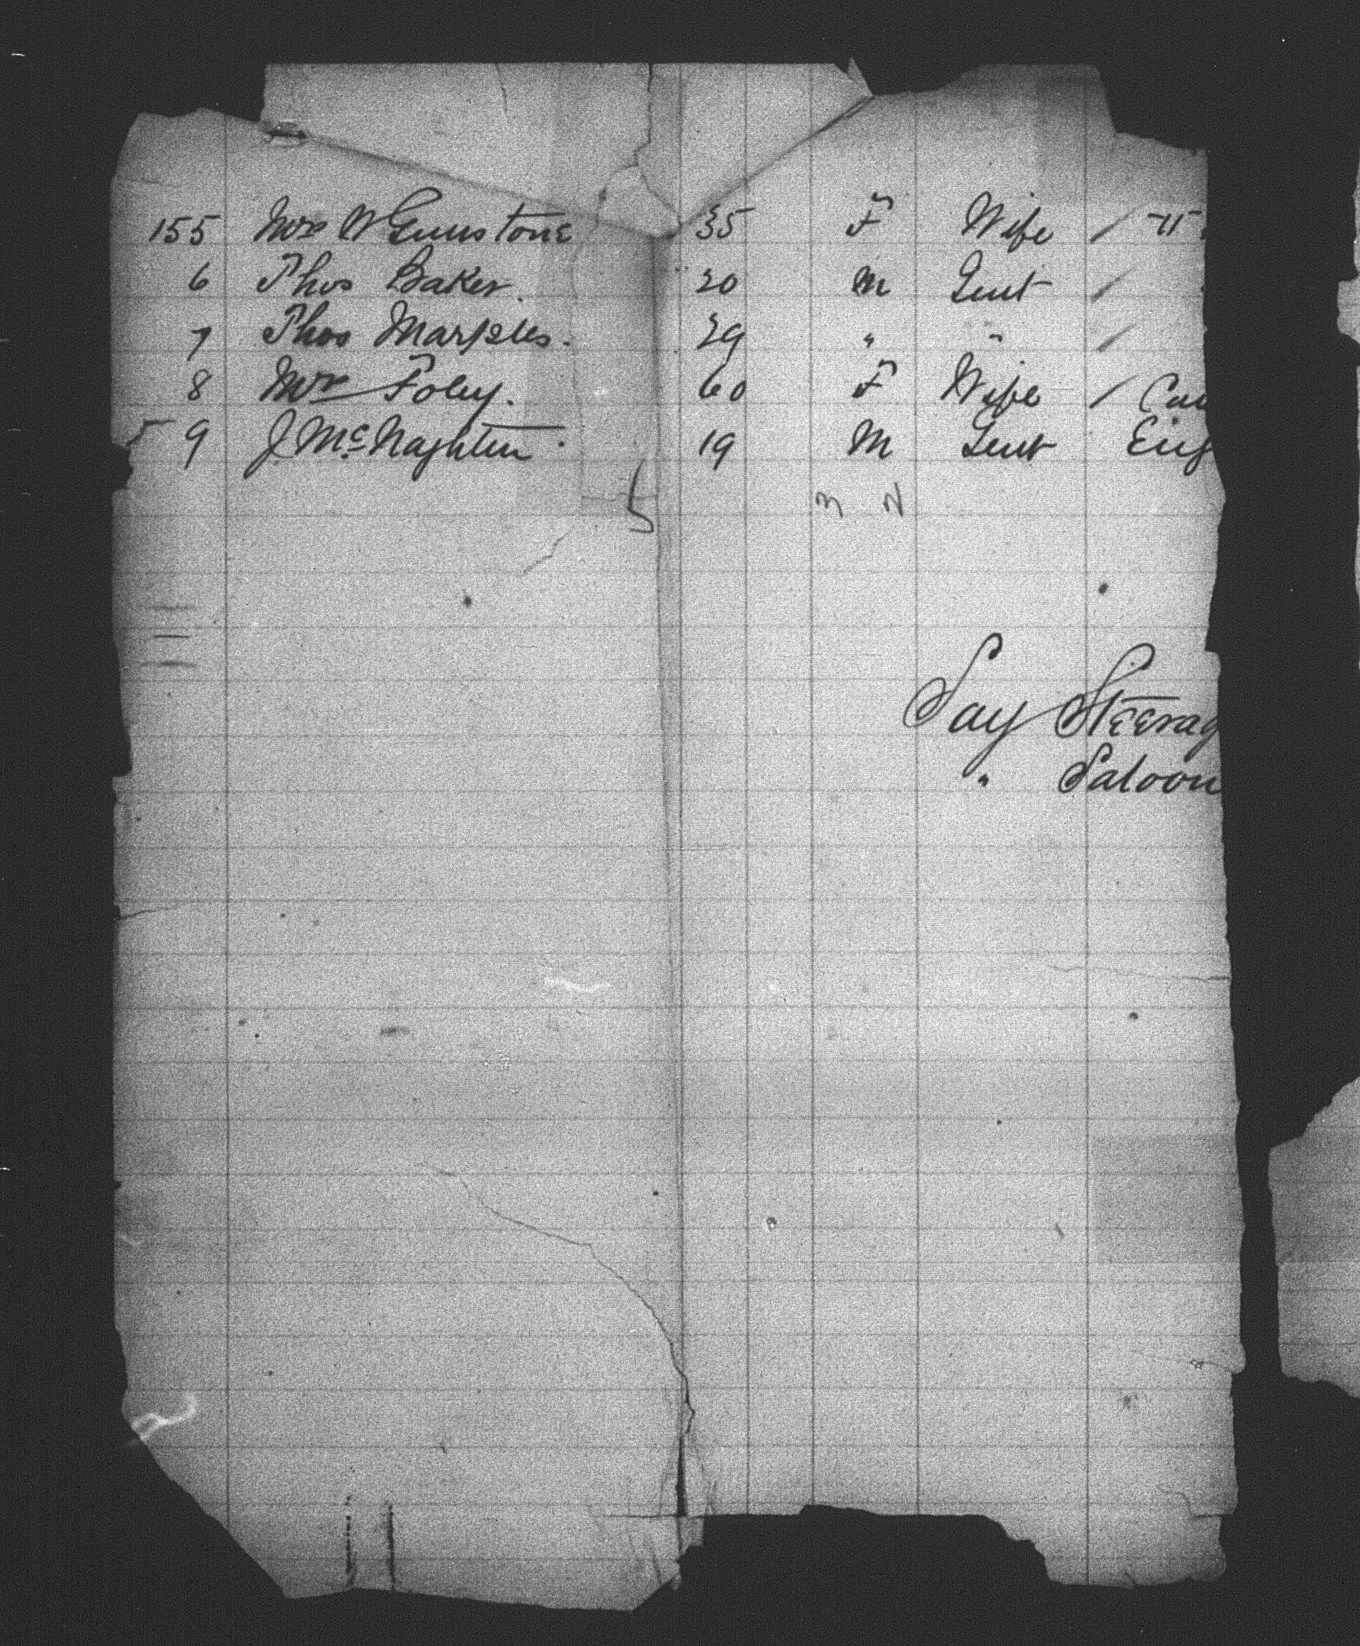 155 Mrs W Gunstone 35 F Wife / U
6 Thos Baker. 20 M Gent /
7 Thos Marples. 29 " " /
8 Mrs Foley. 60 F Wife / Can
9 J McNaghten. 19 M Gent Eng
5 3 2
Say Steerag
" Saloon